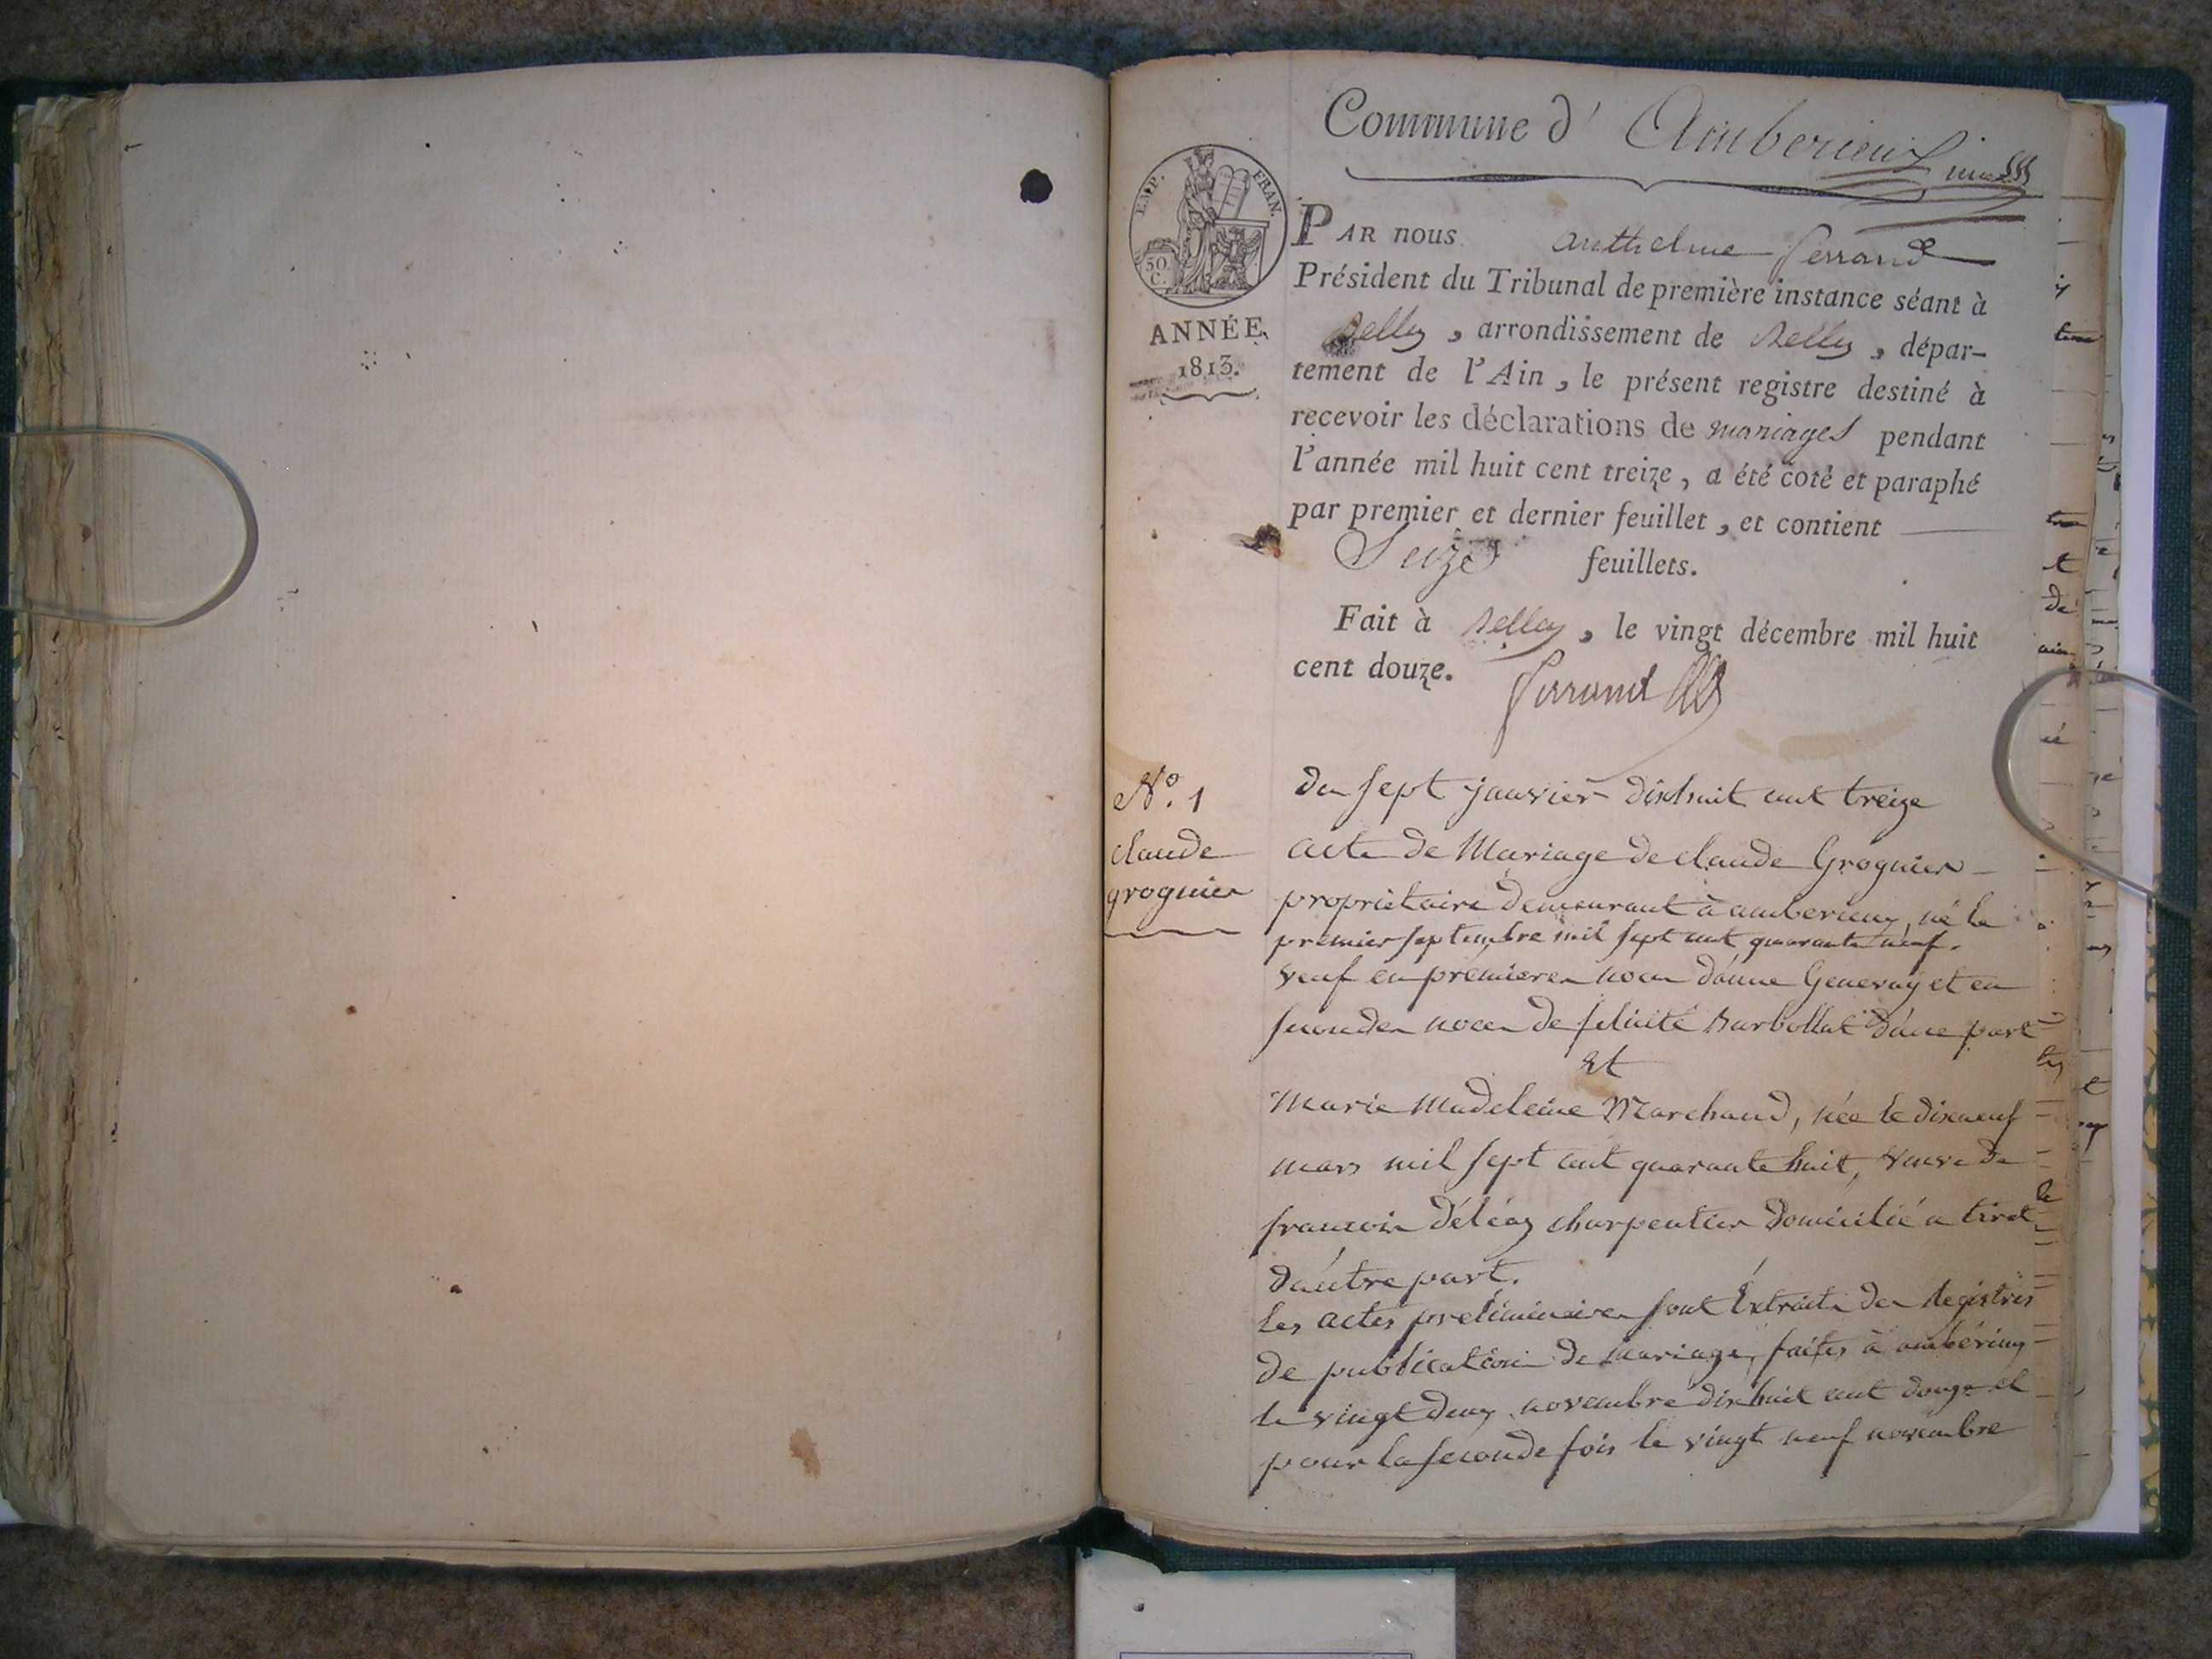 Commune d' Amberieux
EMP. FRAN.
50.
C.
ANNÉE
1813.
PAR nous anthelme ferrand
Président du Tribunal de première instance séant à
Belley, arrondissement de Belley, dépar-
tement de l'Ain, le présent registre destiné à
recevoir les déclarations de mariages pendant
l'année mil huit cent treize, a été coté et paraphé
par premier et dernier feuillet, et contient
Seize feuillets.
Fait à Belley, le vingt décembre mil huit
cent douze.
ferrand
N.º 1
claude
grognier
du sept janvier dixhuit cent treize
acte de Mariage de claude Grognier
proprietaire demeurant à amberieux, né le
premier septembre mil sept cent quarante neuf.
veuf en premieres noces d'anne Genevay et en
secondes noces de felicité Barbollat d'une part
Et
Marie Madeleine Marchand, née le dixneuf
mars mil sept cent quarante huit, veuve de
francois déléaz charpentier domicilié a tiret
d'autre part.
Les actes préliminaires sont Extraits des Registres
de publication de mariage, faites à ambérieux
le vingt deux novembre dixhuit cent douze et
pour la seconde fois le vingt neuf novembre